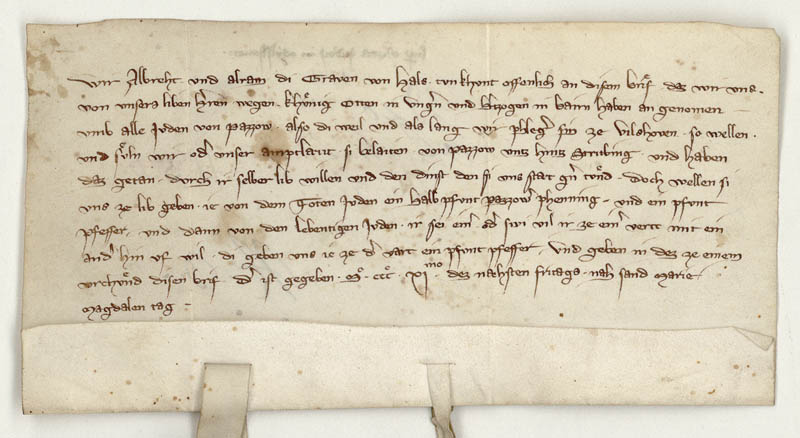 Wir Albreht und alram di Graven von Hals . tun khunt offenlich an disem brif . daz wir uns .
von unsers liben herren wegen . khuͤnig Otten in Ungern und hertzogen in bairn haben an genomen
umb alle Juden von pazzow . also di weil und als lang wir phleger sin ze vilshoven . so wellen .
und suͤln wir oder unser amptlaeut si belaiten . von pazzow untz hintz Strubing . und haben
daz getan . durch ir selber lib willen und den dinst den si uns stat gern tuͦnd . Doch wellen si
uns ze lib geben . ie von dem Toten Juden ein halb pfunt pazzower phenning . und ein pfunt
pfeffer . und dann von den lebentigen Juden . ir sei einer oder swi vil ir ze einer verte mit ein
ander hin uf wil . di geben uns ie ze der vart ein pfunt pfeffer . Und geben in dez ze einem
urchuͤnd disen brif . Der ist gegeben . Mͦ . cccͦ . XImo . dez nahsten fritags . nah sand Marie
Magdalen tag .